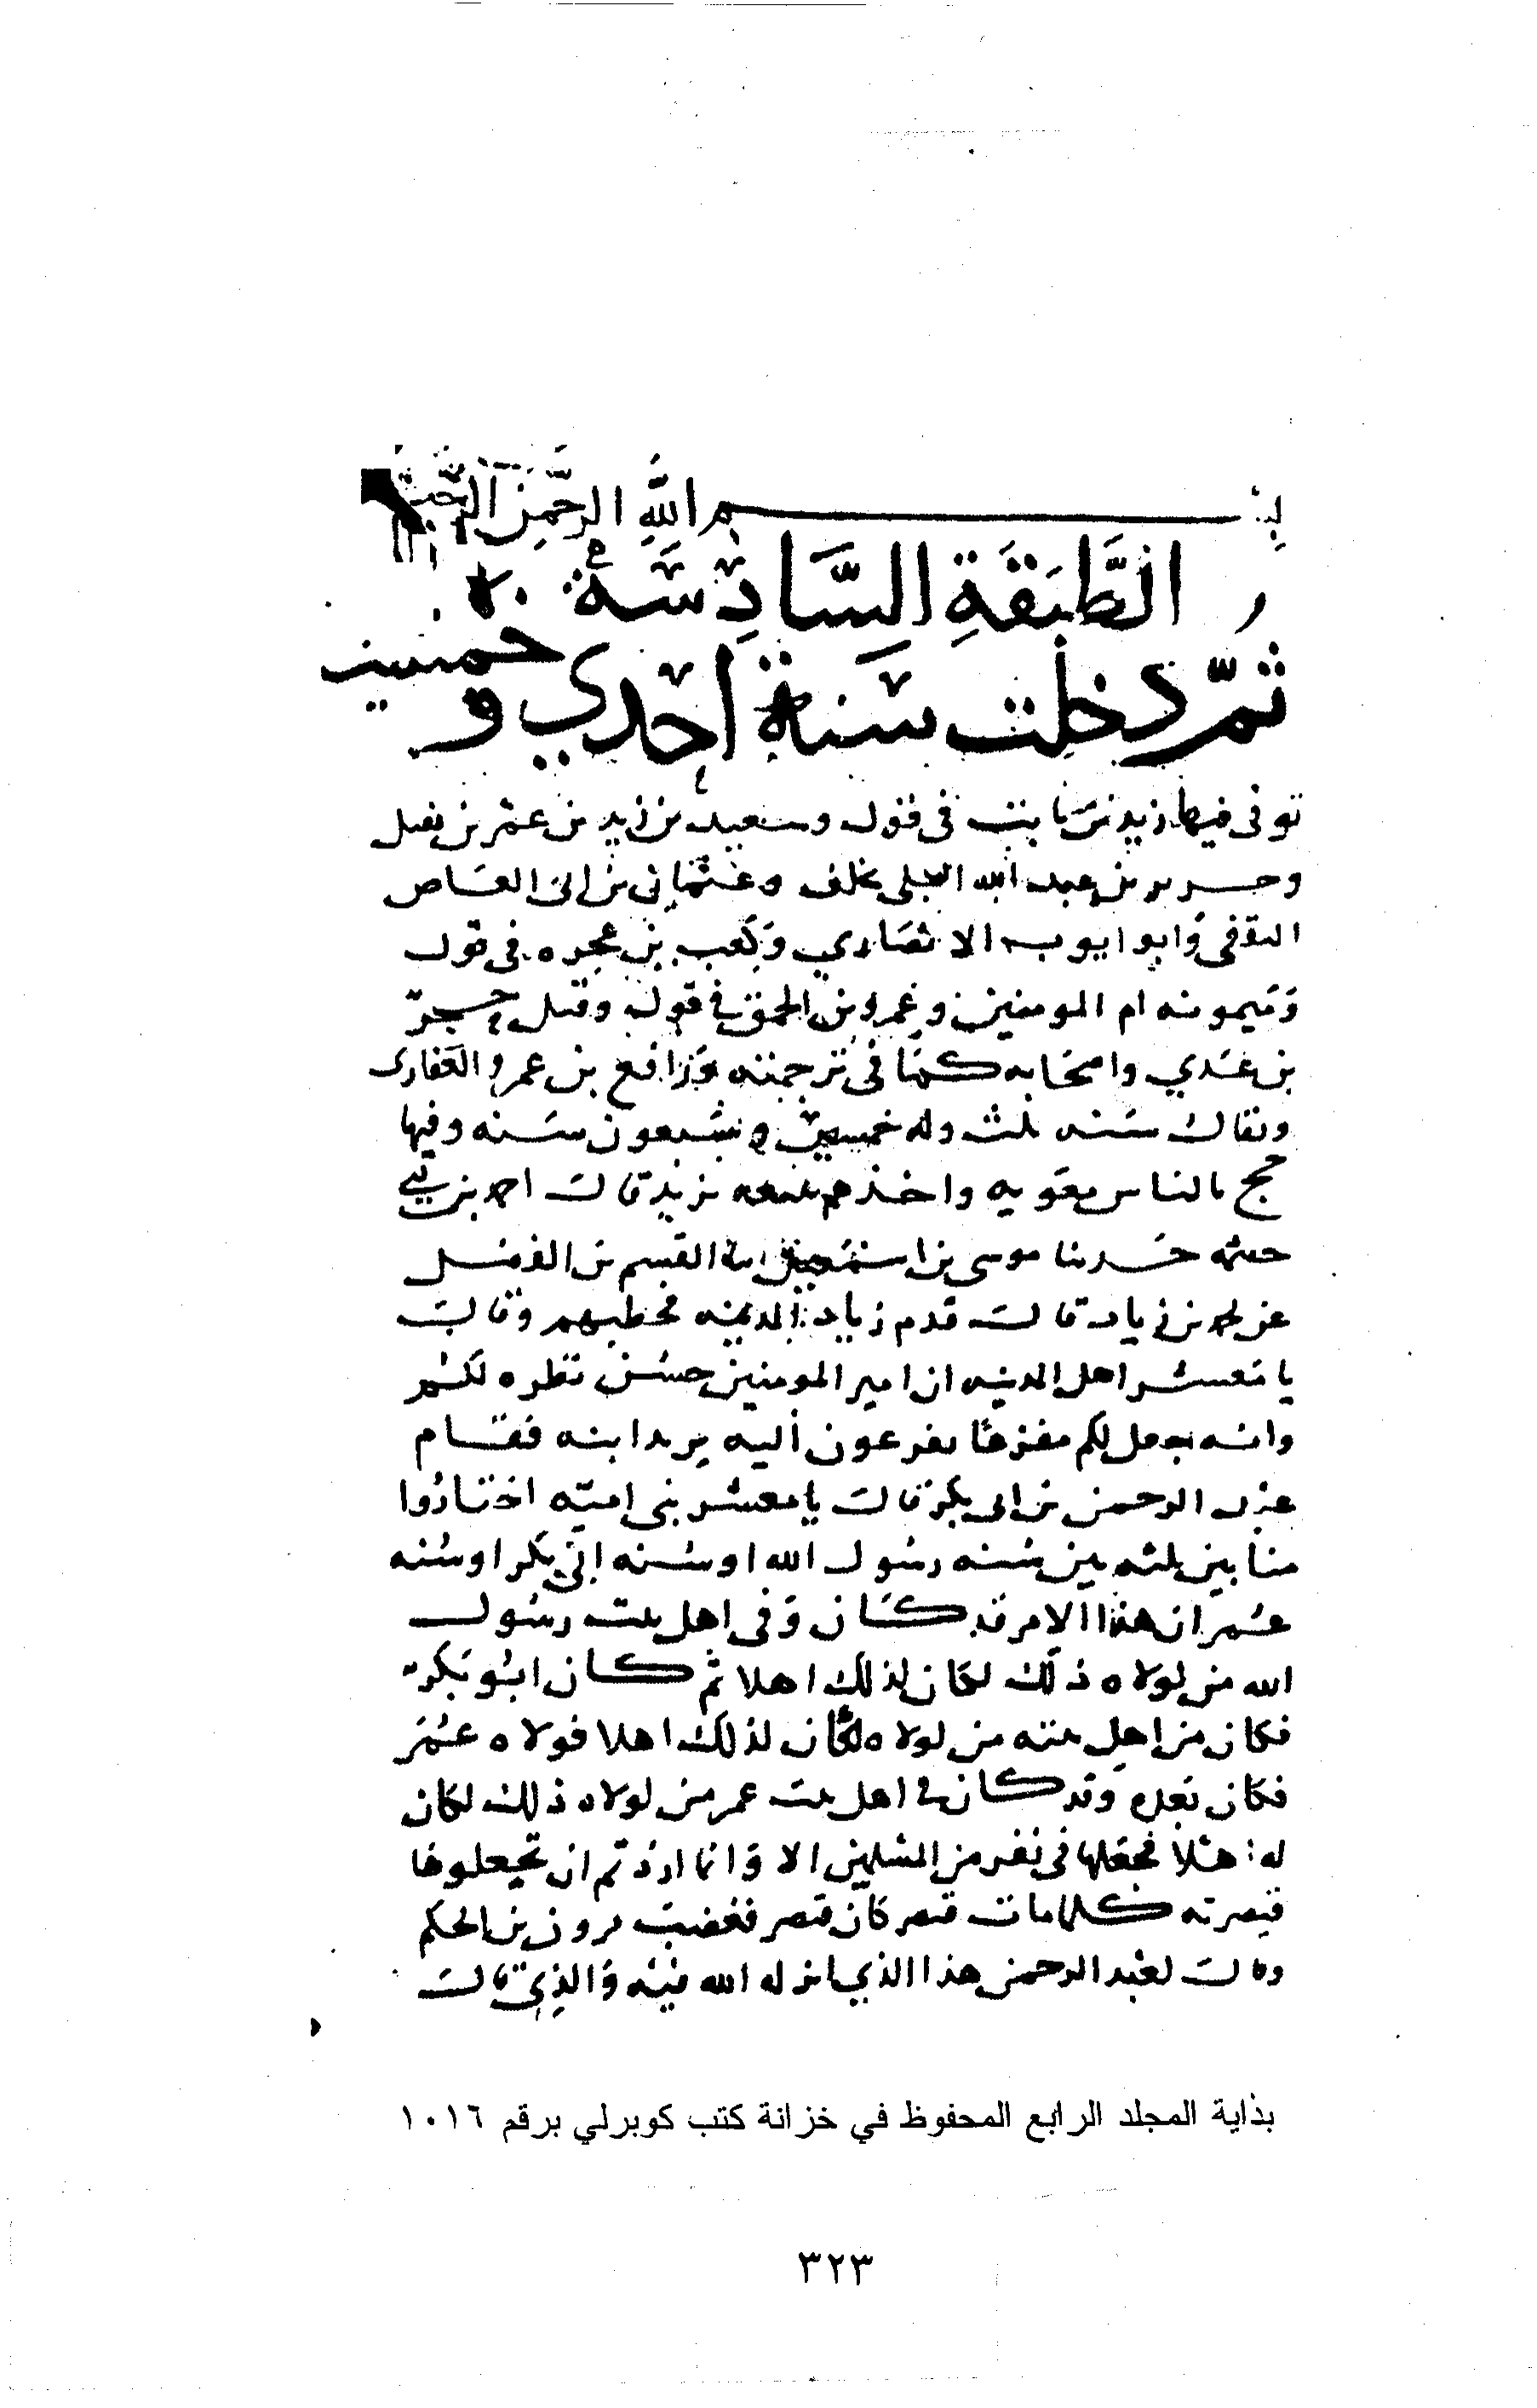 بسم الله الرحمن الرحيم
الطبقة السادسة
ثم دخلت سنة احدي وخمسين
توفى فيها زيد بن ثابت فى قول وسعيد بن زيد بن عمرو بن نفيل
وجرير بن عبد الله البجلى بخلف وعثمان بن ابى العاص
الثقفى وابو ايوب الانصاري وكعب بن عجره فى قول
وميمونه ام المومنين وعمرو بن الحمق في قول وقتل حجر
بن عدي واصحابه كما فى ترجمته ورافع بن عمرو الغفارى
ويقال سنه ثلث وله خمس وسبعون سنه وفيها
حج بالناس معويه واخذهم ببيعه يزيد قال احمد بن ابي
خيثمه حدثنا موسى بن اسمعيل ثنا القسم بن الفضل
عن محمد بن زياد قال قدم زياد المدينه فخطبهم وقال
يا معشر اهل المدينه ان امير المومنين حسن نظره لكم
وانه جعل لكم مفزعا تفزعون اليه يزيد ابنه فقام
عبد الرحمن بن ابى بكر قال يا معشر بنى اميه اختاروا
منا بين ثلثه بين سنه رسول الله او سنه ابى بكر او سنه
عمر ان هذا الامر قد كان وفى اهل بيت رسول
الله من لو ولاه ذلك لكان لذلك اهلا ثم كان ابو بكر
فكان من اهل بيته من لو ولاه لكان لذلك اهلا فولاه عمر
فكان بعده وقد كان في اهل بيت عمر من لو ولاه ذلك لكان
له اهلا فجعلها فى نفر من المسلمين الا وانما اردتم ان تجعلوها
قيصريه كلما مات قيصر كان قيصر فغضب مروان بن الحكم
وقال لعبد الرحمن هذا الذي انزل الله فيه والذي قال
بداية المجلد الرابع المحفوظ في خزانة كتب كوبرلي برقم ١٠١٦
٣٢٣